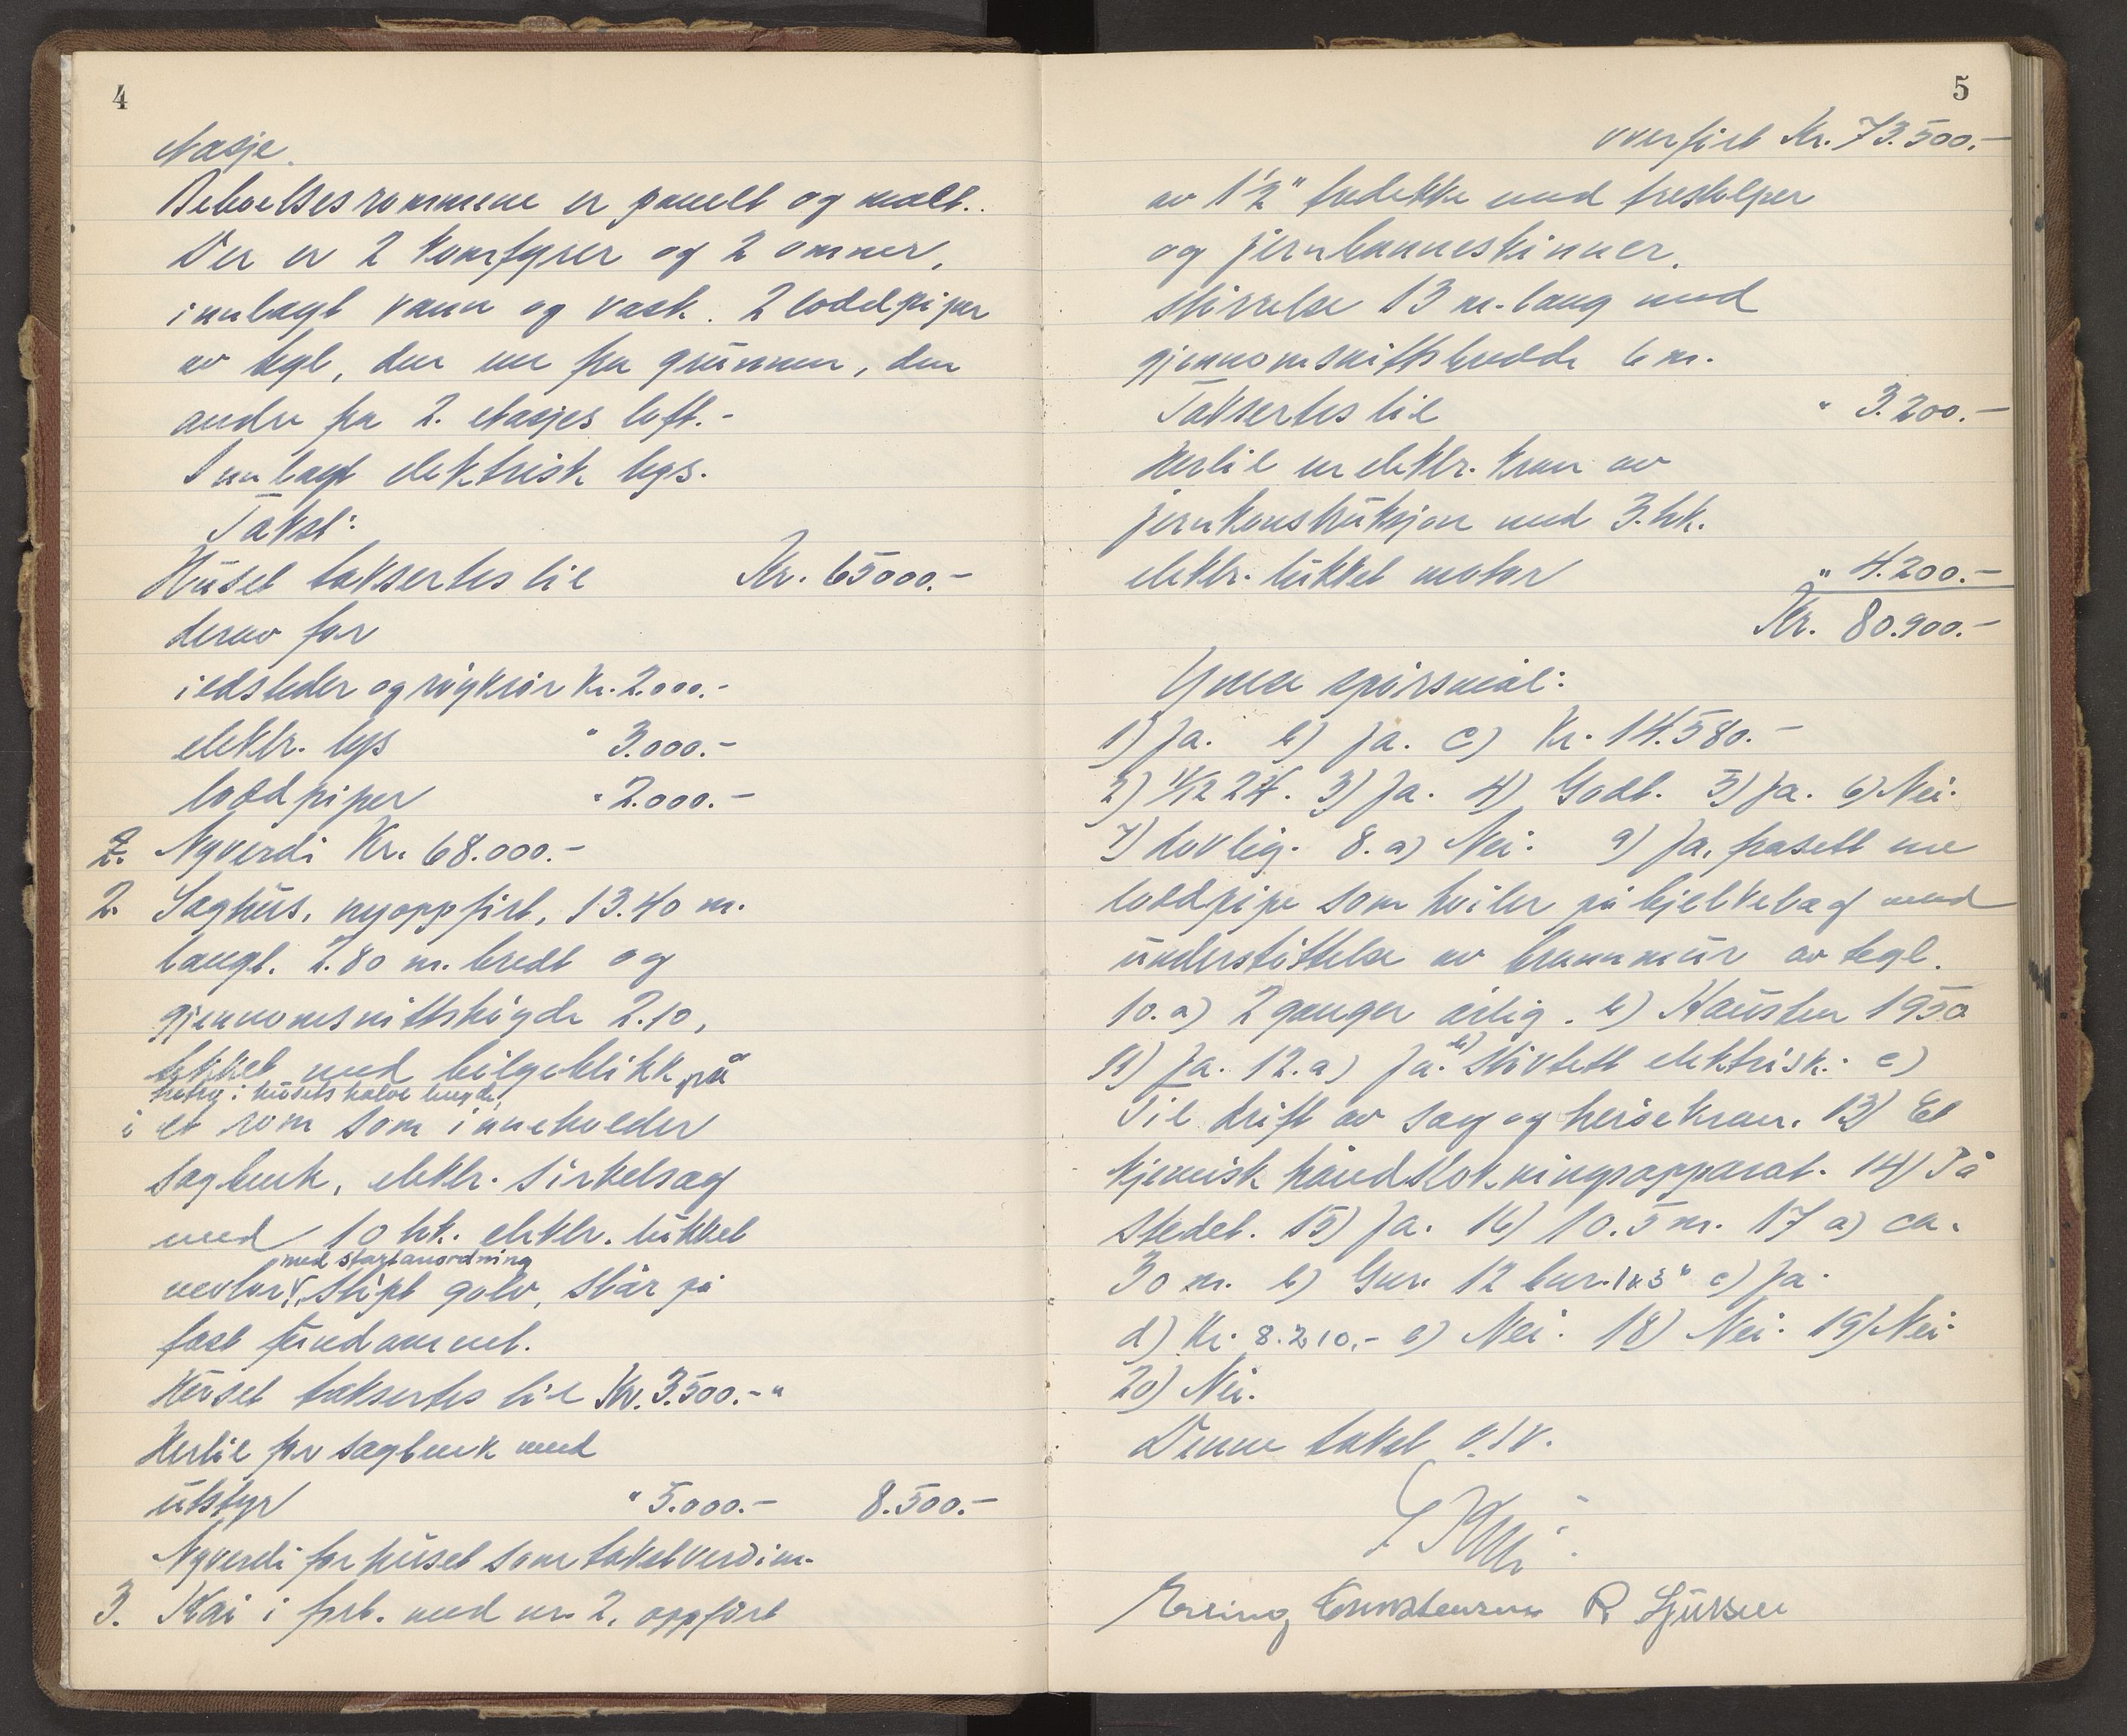 4
etasje.
Beboelsesrommene er panelt og malt.
Der er 2 komfyrer og 2 omner,
innlagt vann og vask. 2 loddpiper
av tegl, den ene fra grunnen, den
andre fra 2. etasjes loft.-
Innlagt elektrisk lys.
Takst:
Huset takseres til Kr. 65000.-
derav for
ildsteder og røykrør kr. 2.000.-
elektr. lys " 3.000.-
loddpiper " 2.000.-
2. Nyverdi Kr. 68.000.-
2. Saghus, nyoppført, 13.40 m.
langt. 2.80 m. bredt og
gjennomsnittshøyde 2.10,
tekket med bølgeblikk på
tretro i husets halve lengde,
i et rom som inneholder
sagbenk, elektr. sirkelsag
med 10 hk. elektr. lukket
med startanordning
motor, støpt golv, står på
fast fundament.
Huset takseres til Kr. 3.500.- "
Hertil for sagbenk med
utstyr " 5.000.- 8.500.-
Nyverdi for huset som takstverdien.
3. Kai i forb. med nr. 2, oppført
5
overført Kr. 73.500.-
av 1½" tredekke med trestolper
og jernbaneskinner.
størrelse 13 m. lang med
gjennomsnittsbredde 6 m.
Takseres til " 3.200.-
Hertil en elektr. kran av
jernkonstruksjon med 3. hk.
elektr. lukket motor " 4.200.-
Kr. 80.900.-
Ymse spørsmål:
1) Ja. b) Ja. c) Kr. 14.580.-
2) 1/12 24. 3) Ja. 4) Godt. 5) Ja. 6) Nei.
7) Lovlig. 8. a) Nei. 9) Ja, frasett ene
loddpipe som hviler på bjelkelag med
understøttelse av brannmur av tegl.
10. a) 2 ganger årlig. b) Hausten 1950
11) Ja. 12. a) Ja. b) Støvtett elektrisk. c)
Til drift av sag og heisekran. 13) Et
kjemisk håndslokningsapparat. 14) På
stedet. 15) Ja. 16) 10.5 m. 17 a) ca.
30 m. b) 12 c) Ja.
d) Kr. 8.210.- e) Nei. 18) Nei. 19) Nei.
20) Nei.
Denne takst
Erling Christensen R Sjursen